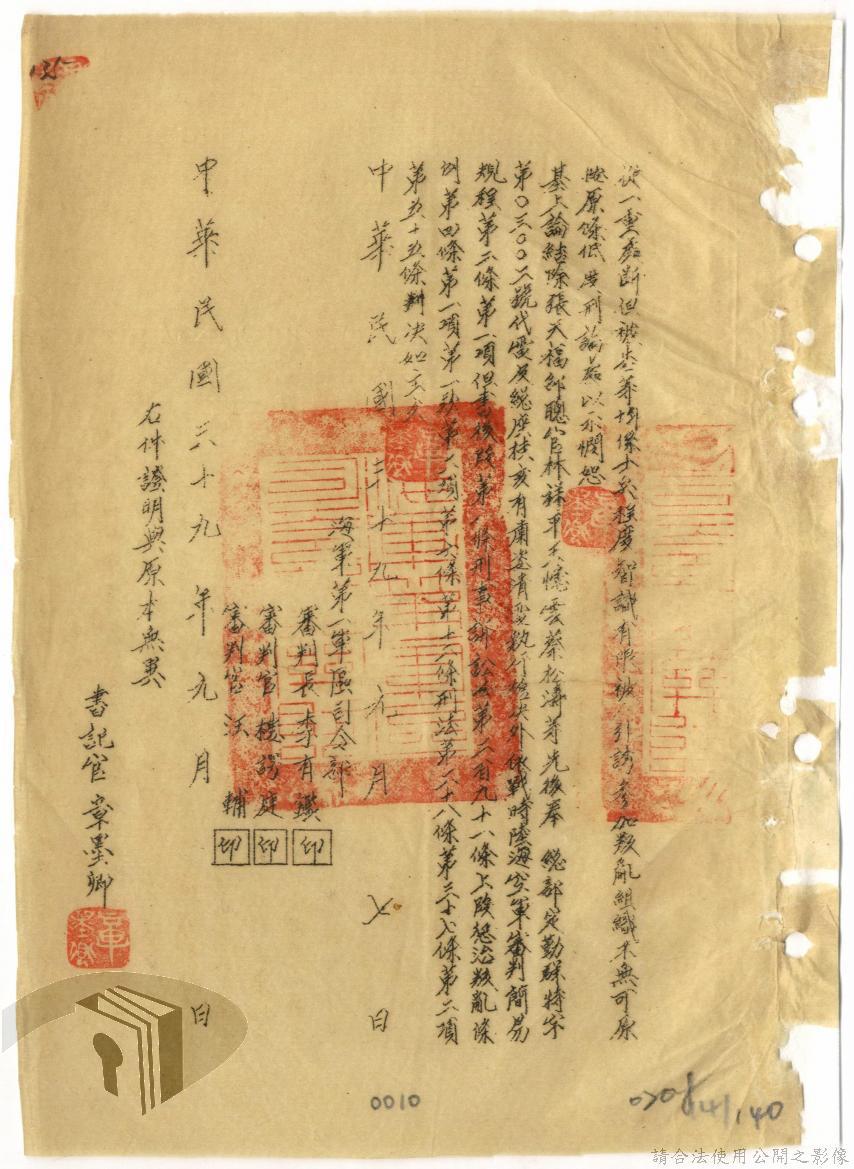 從一重處斷但被告等均係士兵程度智識有限被引誘參加叛亂組織不無可原
原條低度刑論處以示憫恕
基上論結除張天福邱聰官林祥平雲蔡松濤等先後奉 總部定勤緝特字
第〇三〇〇二號代電及總座桂亥有肅政執行槍決外依戰時陸海空軍審判簡易
規程第二條第一項但書後段第八條刑事訴訟法第二百九十一條上段懲治叛亂條
例第四條第一項第一款第二項第六條第十二條刑法第二十八條第三十七條第二項
第五十五條判決如主文
中華民國三十九年九月七日
海軍第一軍區司令部
審判長李有鑑 印
審判官樓詩庭 印
審判官沃輔 印
中華民國三十九年九月 日
右件證明與原本無異
書記官章墨卿
0010
請合法使用公開之影像